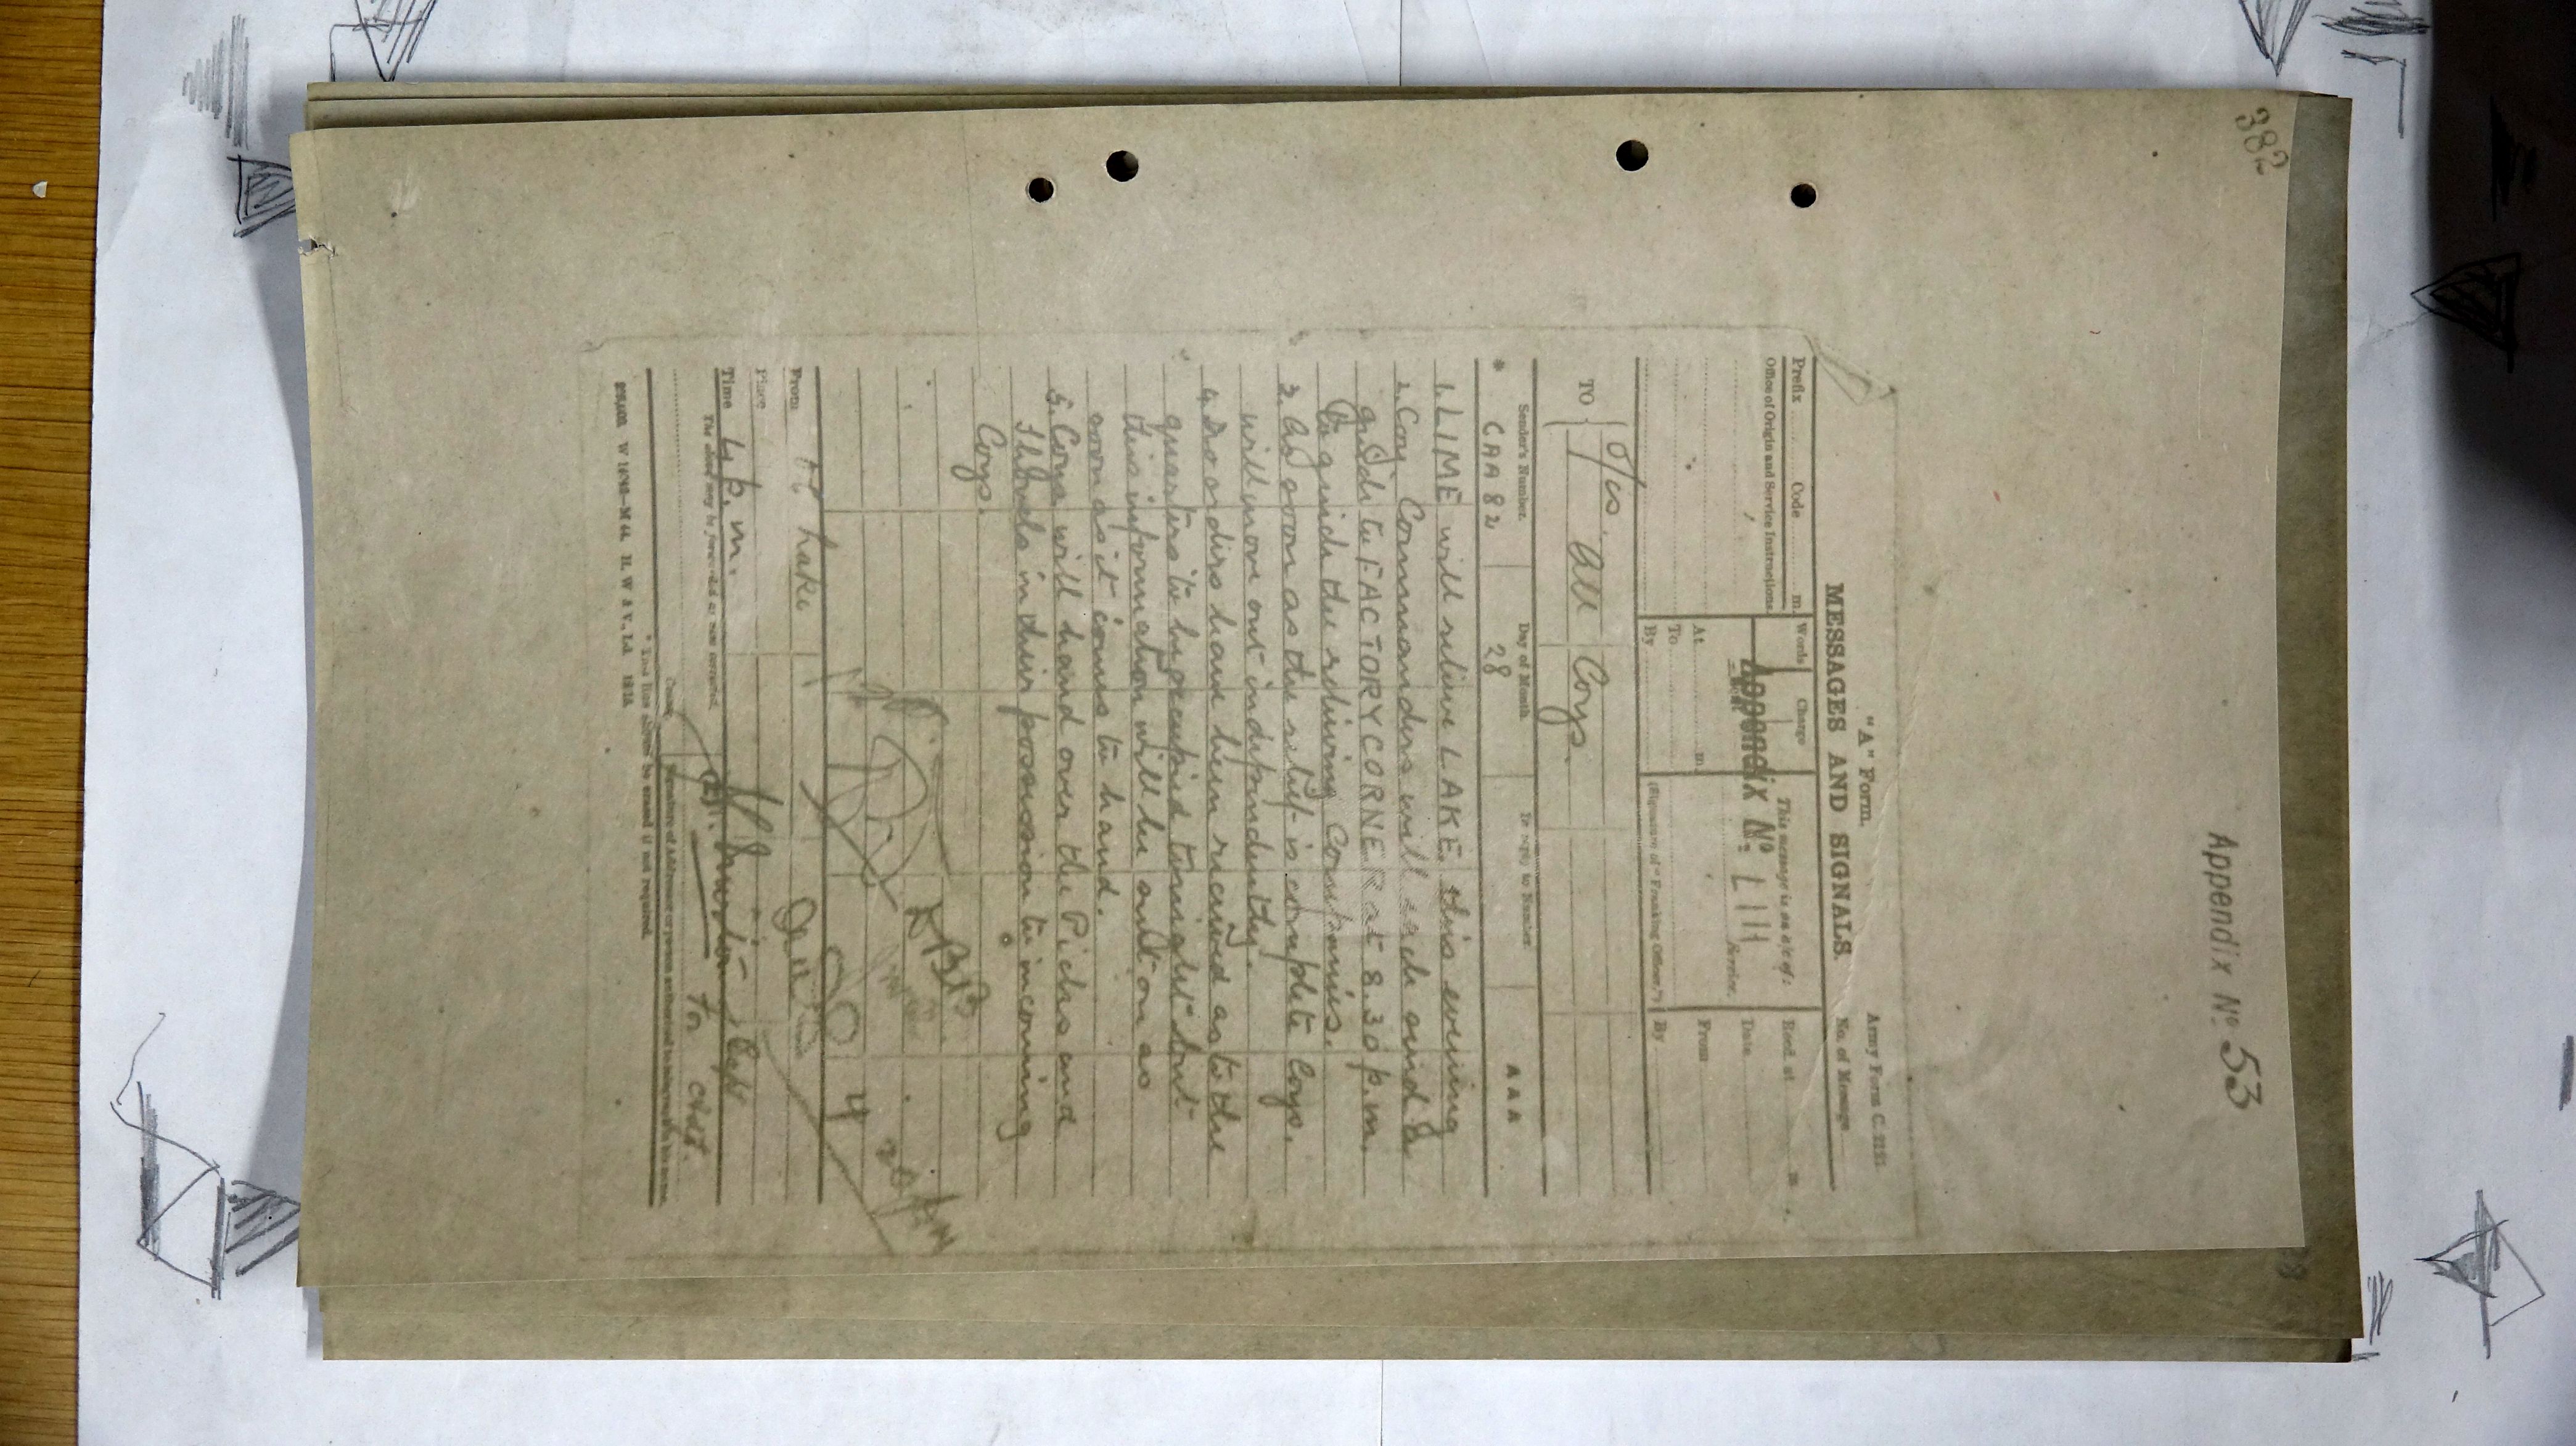 382
Appendix Nº 53
"A" Form.
Army Form C. 2121.
MESSAGES AND SIGNALS.
No. of Message
Prefix Code m.
Words
Charge
This message is on a/c of :
Recd. at m.
Office of Origin and Service Instructions.
Appendix Nº. LIII
Service.
Date
At m.
From
To
By
(Signature of "Franking Officer.")
By
TO
O/Cs. All Coys.
Sender's Number.
Day of Month
In reply to Number
AAA
* CAA 82
28
1. LIME will relieve LAKE this evening
2. Coy Commanders will each send a
guide to FACTORY CORNER at 8.30 p.m.
to guide the relieving Companies.
3. As soon as the relief is complete Coys.
will move out independently.
4. No orders have been received as to the
quarters to be occupied tonight but
this information will be sent on as
soon as it comes to hand.
5. Coys will hand over the Picks and
Shovels in their possession to incoming
Coys.
From Lake
Place
Time 4 p.m.
The above may be forwarded as now corrected.
(Z)
Capt
for Adjt.
Censor.
Signature of Addressor or person authorised to telegraph in his name.
* This line should be erased if not required.
H. W & V., Ld.